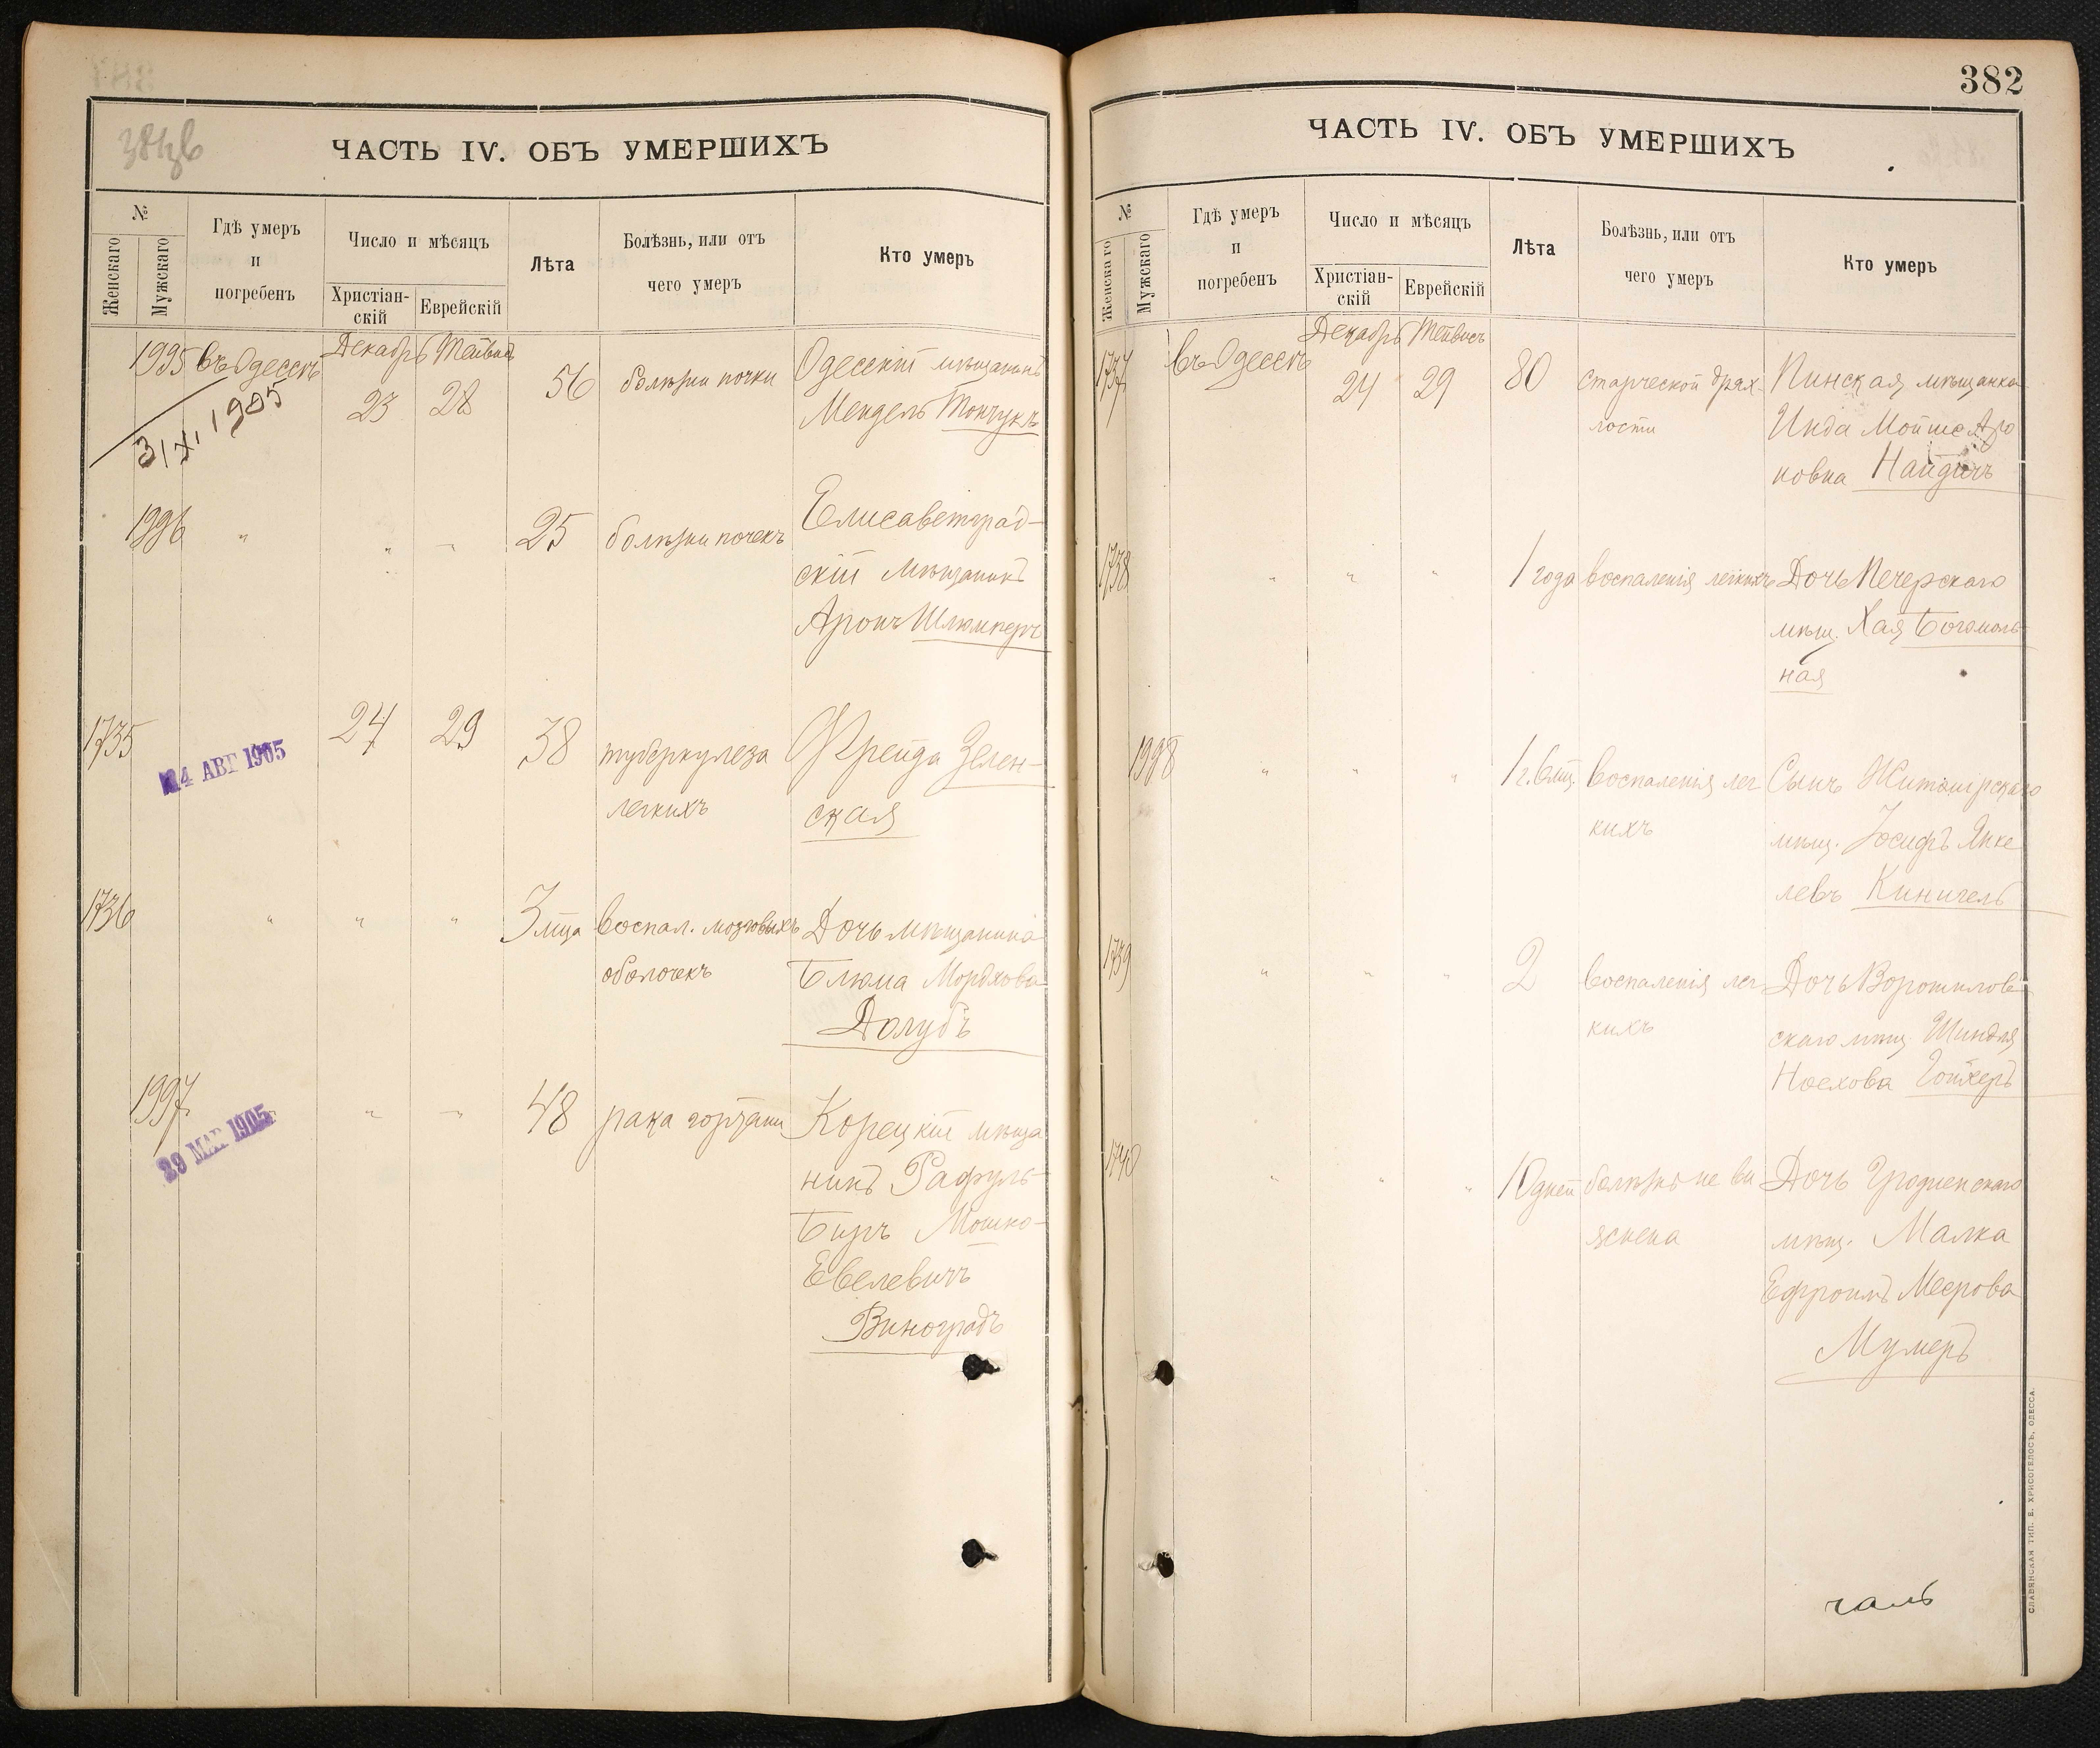 381/в
ЧАСТЬ IV. ОБЪ УМЕРШИХЪ
№
Женскаго
Мужскаго
Гдѣ умеръ
и
погребенъ
Число и мѣсяцъ
Христіан-
скій
Еврейскій
Лѣта
Болѣзнь, или отъ
чего умеръ
Кто умеръ
1995 въ Одессѣ Декабрь Тейвисъ
23 28 56 болѣзни почки Одесскій мѣщанинъ
Мендель Тончукъ
3/XI 1905
1996 " " " 25 болѣзни почекъ Елисаветград-
скій мѣщанинъ
Аронъ Шлюмперъ
1735 24 29 38 туберкулеза Фрейда Зелен-
легкихъ ская
24 АВГ 1905
1736 " " " 3 м-ца воспал. мозговыхъ Дочь мѣщанина
оболочекъ Блюма Мордхова
Долубъ
1997 " " 48 рака гортани Корецкій мѣща
29 МАР 1905
нинъ Рафуль-
Беръ Мошко-
Евелевичъ
Виноградъ
382
ЧАСТЬ IV. ОБЪ УМЕРШИХЪ
№
Женскаго
Мужскаго
Гдѣ умеръ
и
погребенъ
Число и мѣсяцъ
Христіан-
скій
Еврейскій
Лѣта
Болѣзнь, или отъ
чего умеръ
Кто умеръ
1737 въ Одессѣ Декабрь Тейвисъ
24 29 80 старческой дрях- Пинская мѣщанка
лости Инда Мойше Аро
новна Найдичъ
1738 " " " 1 года воспаленія легкихъ Дочь Печерскаго
мѣщ. Хая Богомоль-
ная
1998 " " " 1 г. 6 мѣс. воспаленія лег Сынъ Житомірскаго
кихъ мѣщ. Іосифъ Янке
левъ
1739 " " " 2 воспаленія лег Дочь Ворошилов-
кихъ скаго мѣщ. Шиндля
Ноехова Гойхеръ
1740 " " " 10 дней болѣзнь не вы Дочь Гродненскаго
яснена мѣщ. Малка
Ефроимъ Меерова
Мумеръ
СЛАВЯНСКАЯ ТИП. Е. ХРИСОГЕЛОСЪ, ОДЕССА.